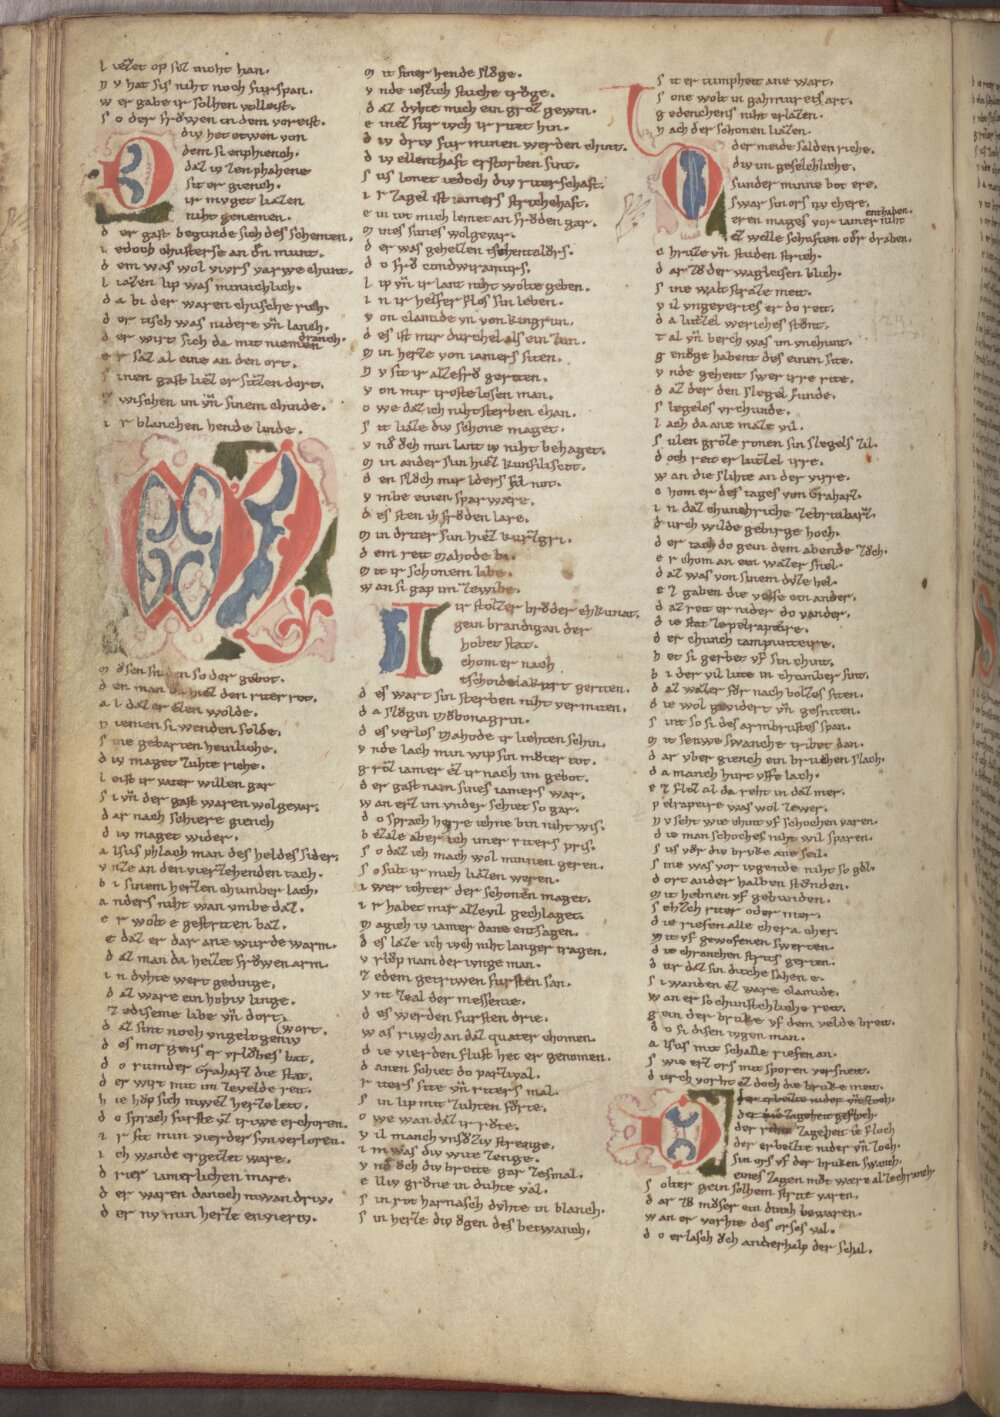 l uezet op sol nioht han.
n v hat sis niht noch fur span.
w er gabe ir solhen volleist.
s o der fröwen in dem voreist.
D iv het etwen von
dem si enphiench.
daz iv zen phahene
sit er giench.
ir mvget liazen
niht genemen.
d er gast begunde sich des schemen.
i edoch chusterse an dñ munt.
d em was wol vivrs varwe chunt.
l iazen lip was minnechlich.
d a bi der waren chusche rich.
d er tisch was nidere vñ lanch.
d er wirt sich da mit niemen dranch.
e r saz al eine an den ort.
s inen gast hiez er sitzen dort.
z wischen im vñ sinem chinde.
i r blanchen hende linde.
M
m ösen sniden so der gebot.
d en man da hiez den riter rot.
a l daz er ezen wolde.
n iemen si wenden solde.
s ine gebarten heinliche.
d iv maget zuhte riche.
l eist ir vater willen gar
s i vñ der gast waren wolgevar.
d ar nach schiere giench
d iv maget wider.
a lsus phlach man des heldes sider.
v nze an den vierzehenden tach.
b i sinem herzen chumber lach.
a nders niht wan vmbe daz.
e r wolt e gestriten baz.
e daz er dar ane wurde warm.
d az man da heizet fröwen arm.
i n dvhte wert gedinge.
d az ware ein hohiv linge.
z e disime libe vñ dort.
d az sint noch vngelogeniv wort.
d es morgens er vrlöbes bat.
d o rumder Graharz die stat.
d er wirt mit im zevelde reit.
h ie höp sich niwez herze leit.
d o sprach furste vz triwe erchoren.
i r sit min vierder svn verloren.
i ch wande ergezet ware.
d rier iamerlichen mare.
d er waren dannoch niwan driv.
d er nv min herze envierv.
m it siner hende slöge.
v nde ieslich stuche tröge.
d az dvhte mich ein groz gewin.
e inez fur ivch ir ritet hin.
d iv driv fur minen werden chint.
d iv ellenthaft erstorben sint.
s us lonet iedoch div riterschaft.
i r zagel ist iamers strichehaft.
e in tot mich lemet an fröden gar.
m ines sunes wolgevar.
d er was geheizen tschentaflors.
d o frö condwiramurs.
l ip vñ ir lant niht wolte geben.
i n ir helfer flos sin leben.
v on clamide vn von kingrun.
d es ist mir durchel als ein zun.
m in herze von iamers siten.
n v sit ir alze frö geriten.
v on mir troste losen man.
o we daz ich niht sterben chan.
s it liaze div schone maget.
v nd öch min lant iv niht behaget.
m in ander sun hiez kunsilicscot.
d en slöch mir iders fil not.
v mbe einen sparware.
d es sten ih fröden lare.
m in driter sun hiez kurzgri.
d em reit mahode bi.
m it ir schonem libe.
w an si gap im zewibe.
I ir stolzer bröder ehkunat.
gein brandigan der
hobet stat.
chom er nach
tschoidelakurt geriten.
d es wart sin sterben niht vermiten.
d a slögin möbonagrin.
d es verlos mahode ir liehten schin.
v nde lach min wip sin möter tot.
g roz iamer ez ir nach im gebot.
d er gast nam sines iamers war.
w an erz im vnder schiet so gar.
d o sprach herre ichne bin niht wis.
b ezale aber ich imer riters pris.
s o daz ich mach wol minnen geren.
s o sult ir mich liazen weren.
i wer tohter der schonen maget.
i r habet mir alze vil gechlaget.
m ag ich iv iamer danne entsagen.
d es laze ich ivch niht langer tragen.
v rlöp nam der ivnge man.
z edem getriwen fursten san.
v nt zeal der messenie.
d es werden fursten drie.
w as riwch an daz quater chomen.
d ie vierden flust het er genomen.
d anen schiet do parzival.
r iters site vñ riters mal.
s in lip mit zuhten förte.
o we wan daz ir röte.
v il manch vnsözv strenge.
i m was div wite zenge.
v nd öch div breite gar zesmal.
e lliv gröne in duhte val.
s in rot harnasch dvhte in blanch.
s in herze div ögen des betwanch.
s it er tumpheit ane wart.
s one wolt in gahmurets art.
g edenchens niht erlazen.
n ach der schonen liazen.
D der meide salden riche.
div im gesellechliche.
sunder minne bot ere.
swar sin ors nv chere.
eren mages vor iamer niht enthaben.
ez welle schuften oder draben.
c hrutze vñ studen strich.
d ar zö der wagleisen bich.
s ine walt straze meit.
v il vngevertes er do reit.
d a lutzel weriches stönt.
t al vñ berch was im vnchunt.
g enöge habent des einen site.
v nde gehent swer irre rite.
d az der den slegel funde.
s legeles vrchunde.
l ach da ane maze vil.
s ulen groze ronen sin slegels zil.
d och reit er lutzel irre.
w an die slihte an der virre.
c hom er des tages von Graharz.
i n daz chunchriche zebrubarz.
d urch wilde gebirge hoch.
d er tach do gein dem abende zöch.
e r chom an ein wazer snel.
d az was von sinem döze hel.
e z gaben die velse ein ander.
d az reit er nider do vander.
d ie stat zepelrapeire.
d er chunch tampunteire.
h et si gerbet vf sin chint.
b i der vil lute in chumber sint.
d az wazer för nach bolzes siten.
d ie wol gevidert vñ gesniten.
s int so si des armbrustes span.
m it senwe swanche tribet dan.
d ar vber giench ein bruken slach.
d a manch hurt vffe lach.
e z floz al da reht in daz mer.
p elrapeire was wol zewer.
n v seht wie chint vf schochen varen.
d ie man schoches niht wil sparen.
s us vör div bruke ane seil.
s ine was vor ivgende niht so göl.
d ort ander halbvn stönden.
m it helmen vf gebunden.
s ehzch riter oder mer.
d ie riefen alle chera cher.
m it vf geworfenen swerten.
d ie chranchen strits gerten.
d ur daz sin dicche sahen e.
s i wanden ez ware clamide.
w an er so chunschliche reit.
g ein der bruke vf dem velde breit.
d o si disen ivgen man.
a lsus mit schalle riefen an.
s wie erz ors mit sporen versneit.
d urch vorht ez doch die bruke meit.
D der erbeizte nider vñ zoch.
der ᵃie zageheit gefloch.
der rehte zageheit ie floch
der erbeizte nider vñ zoch.
sin ors vf der bruken swanch.
eines zagen möt ware alzechranch
s olter gein solhem strite varen.
d ar zö möser ein dinch bewaren.
w an er vorhte des orses val.
d o erlasch öch anderhalp der schal.